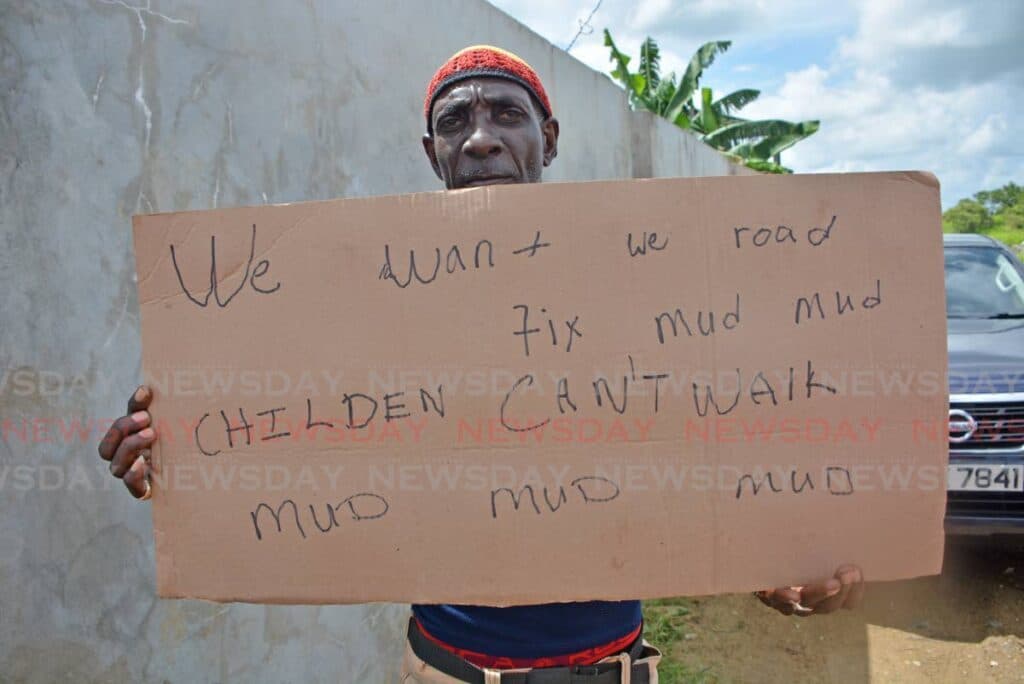 We want we road
fix mud mud
CHILDEN CAN'T WALK
MUD MUD MUD
NEWSDAY NEWSDAY NEWSDAY NEWSDAY NEWSDAY NEWSDAY
NEWSDAY NEWSDAY NEWSDAY NEWSDAY NEWSDAY NEWSDAY
NEWSDAY NEWSDAY NEWSDAY NEWSDAY NEWSDAY NEWSDAY
7841